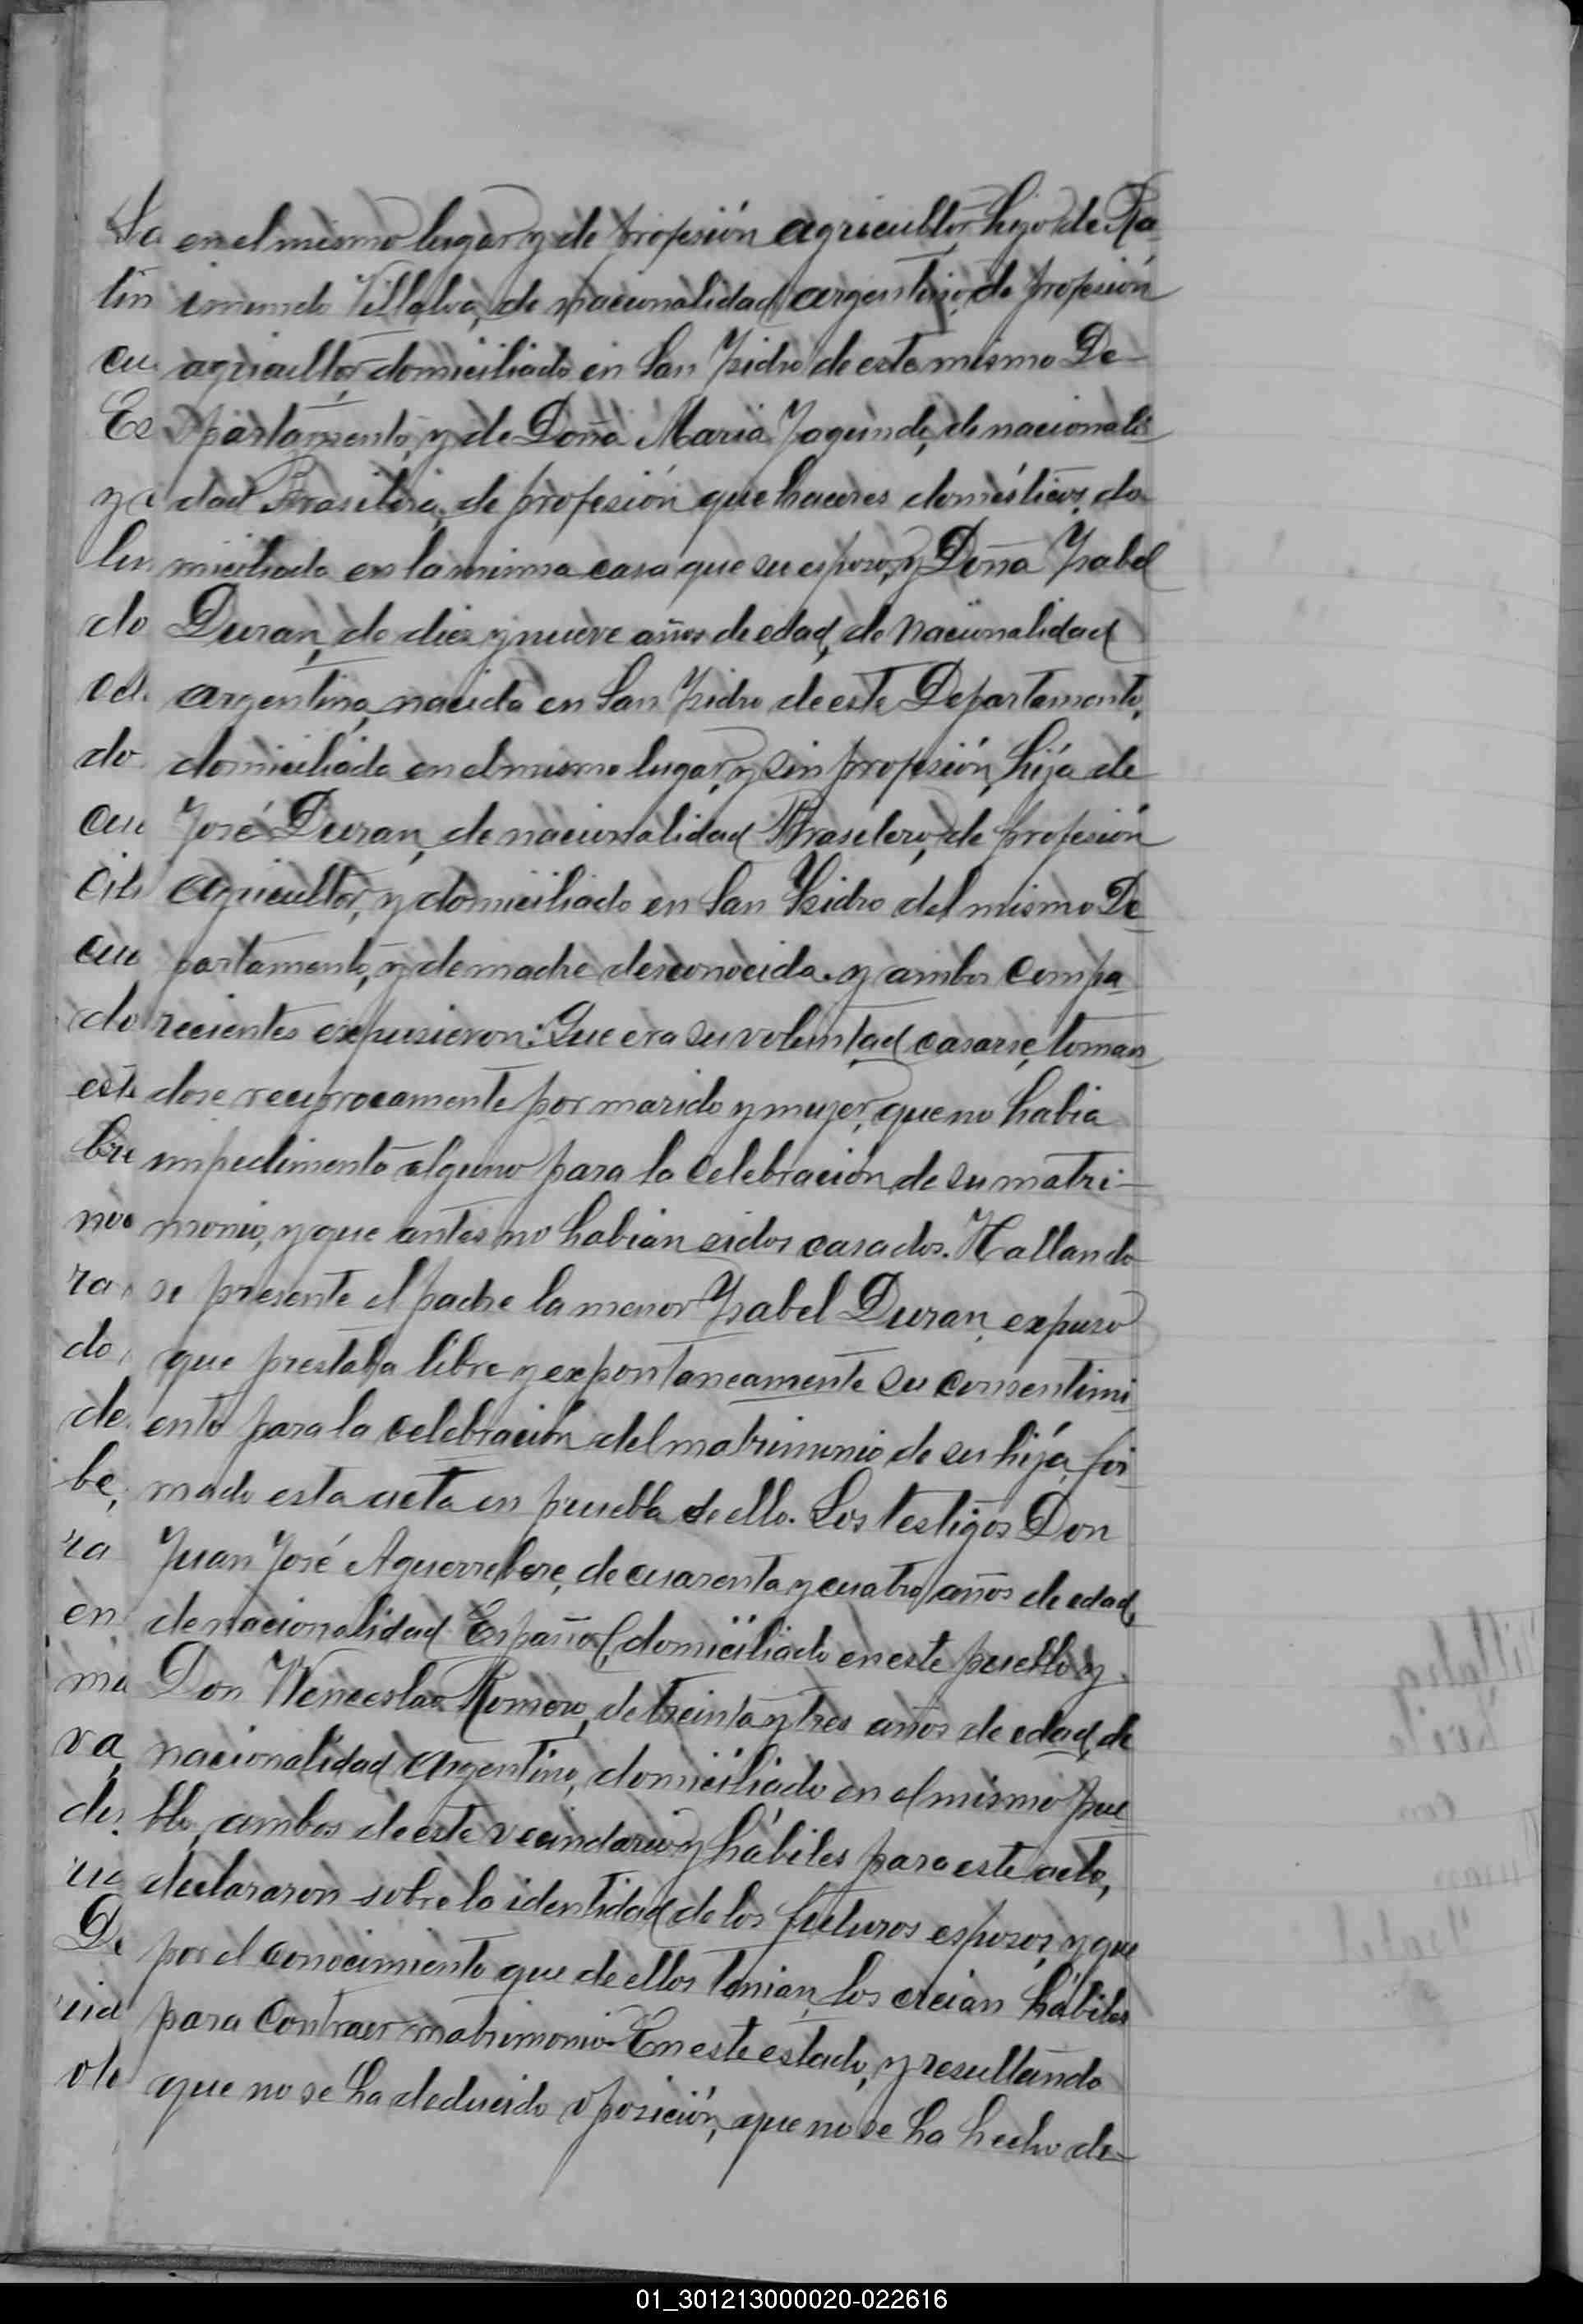 en el mismo lugar y de profesión agricultor, hijo de Ra
imundo Villalva, de nacionalidad argentino, de profesión
agricultor, domiciliado en San Ysidro de este mismo De-
partamento, y de Doña María Yoguinde, de nacionali
dad Brasilera, de profesión que haceres domésticos, do
miciliada en la misma casa que su esposo, y Doña Ysabel
Duran, de diez y nueve años de edad, de nacionalidad
argentina, nacida en San Ysidro de este Departamento,
domiciliada en el mismo lugar, y sin profesión, hija de
José Duran, de nacionalidad Brasilero, de profesión
agricultor, y domiciliado en San Ysidro del mismo De
partamento, y de madre desconocida. y ambos compa
recientes expusieron: Que era su voluntad casarse, toman
dose reciprocamente por marido y mujer, que no habia
impedimento alguno para la celebración de su matri-
monio, y que antes no habian sidos casados. Hallando
se presente el padre la menor Ysabel Duran, expuso
que prestaba libre y expontaneamente su consentimi
ento para la celebración del matrimonio de su hija, fir
mado esta acta en prueba de ello. Los testigos Don
Juan José Aguerrebere, de cuarenta y cuatro años de edad,
de nacionalidad Español, domiciliado en este pueblo y
Don Wenceslao Romero, de treinta y tres años de edad, de
nacionalidad Argentino, domiciliado en el mismo pue
blo, ambos de este vecindario y hábiles para este acto,
declararon sobre la identidad de los futuros esposos, y que
por el conocimiento que de ellos tenian, los creian hábiles
para contraer matrimonio. En este estado, y resultando
que no se ha deducido oposición, que no se ha hecho de-
01_301213000020-022616